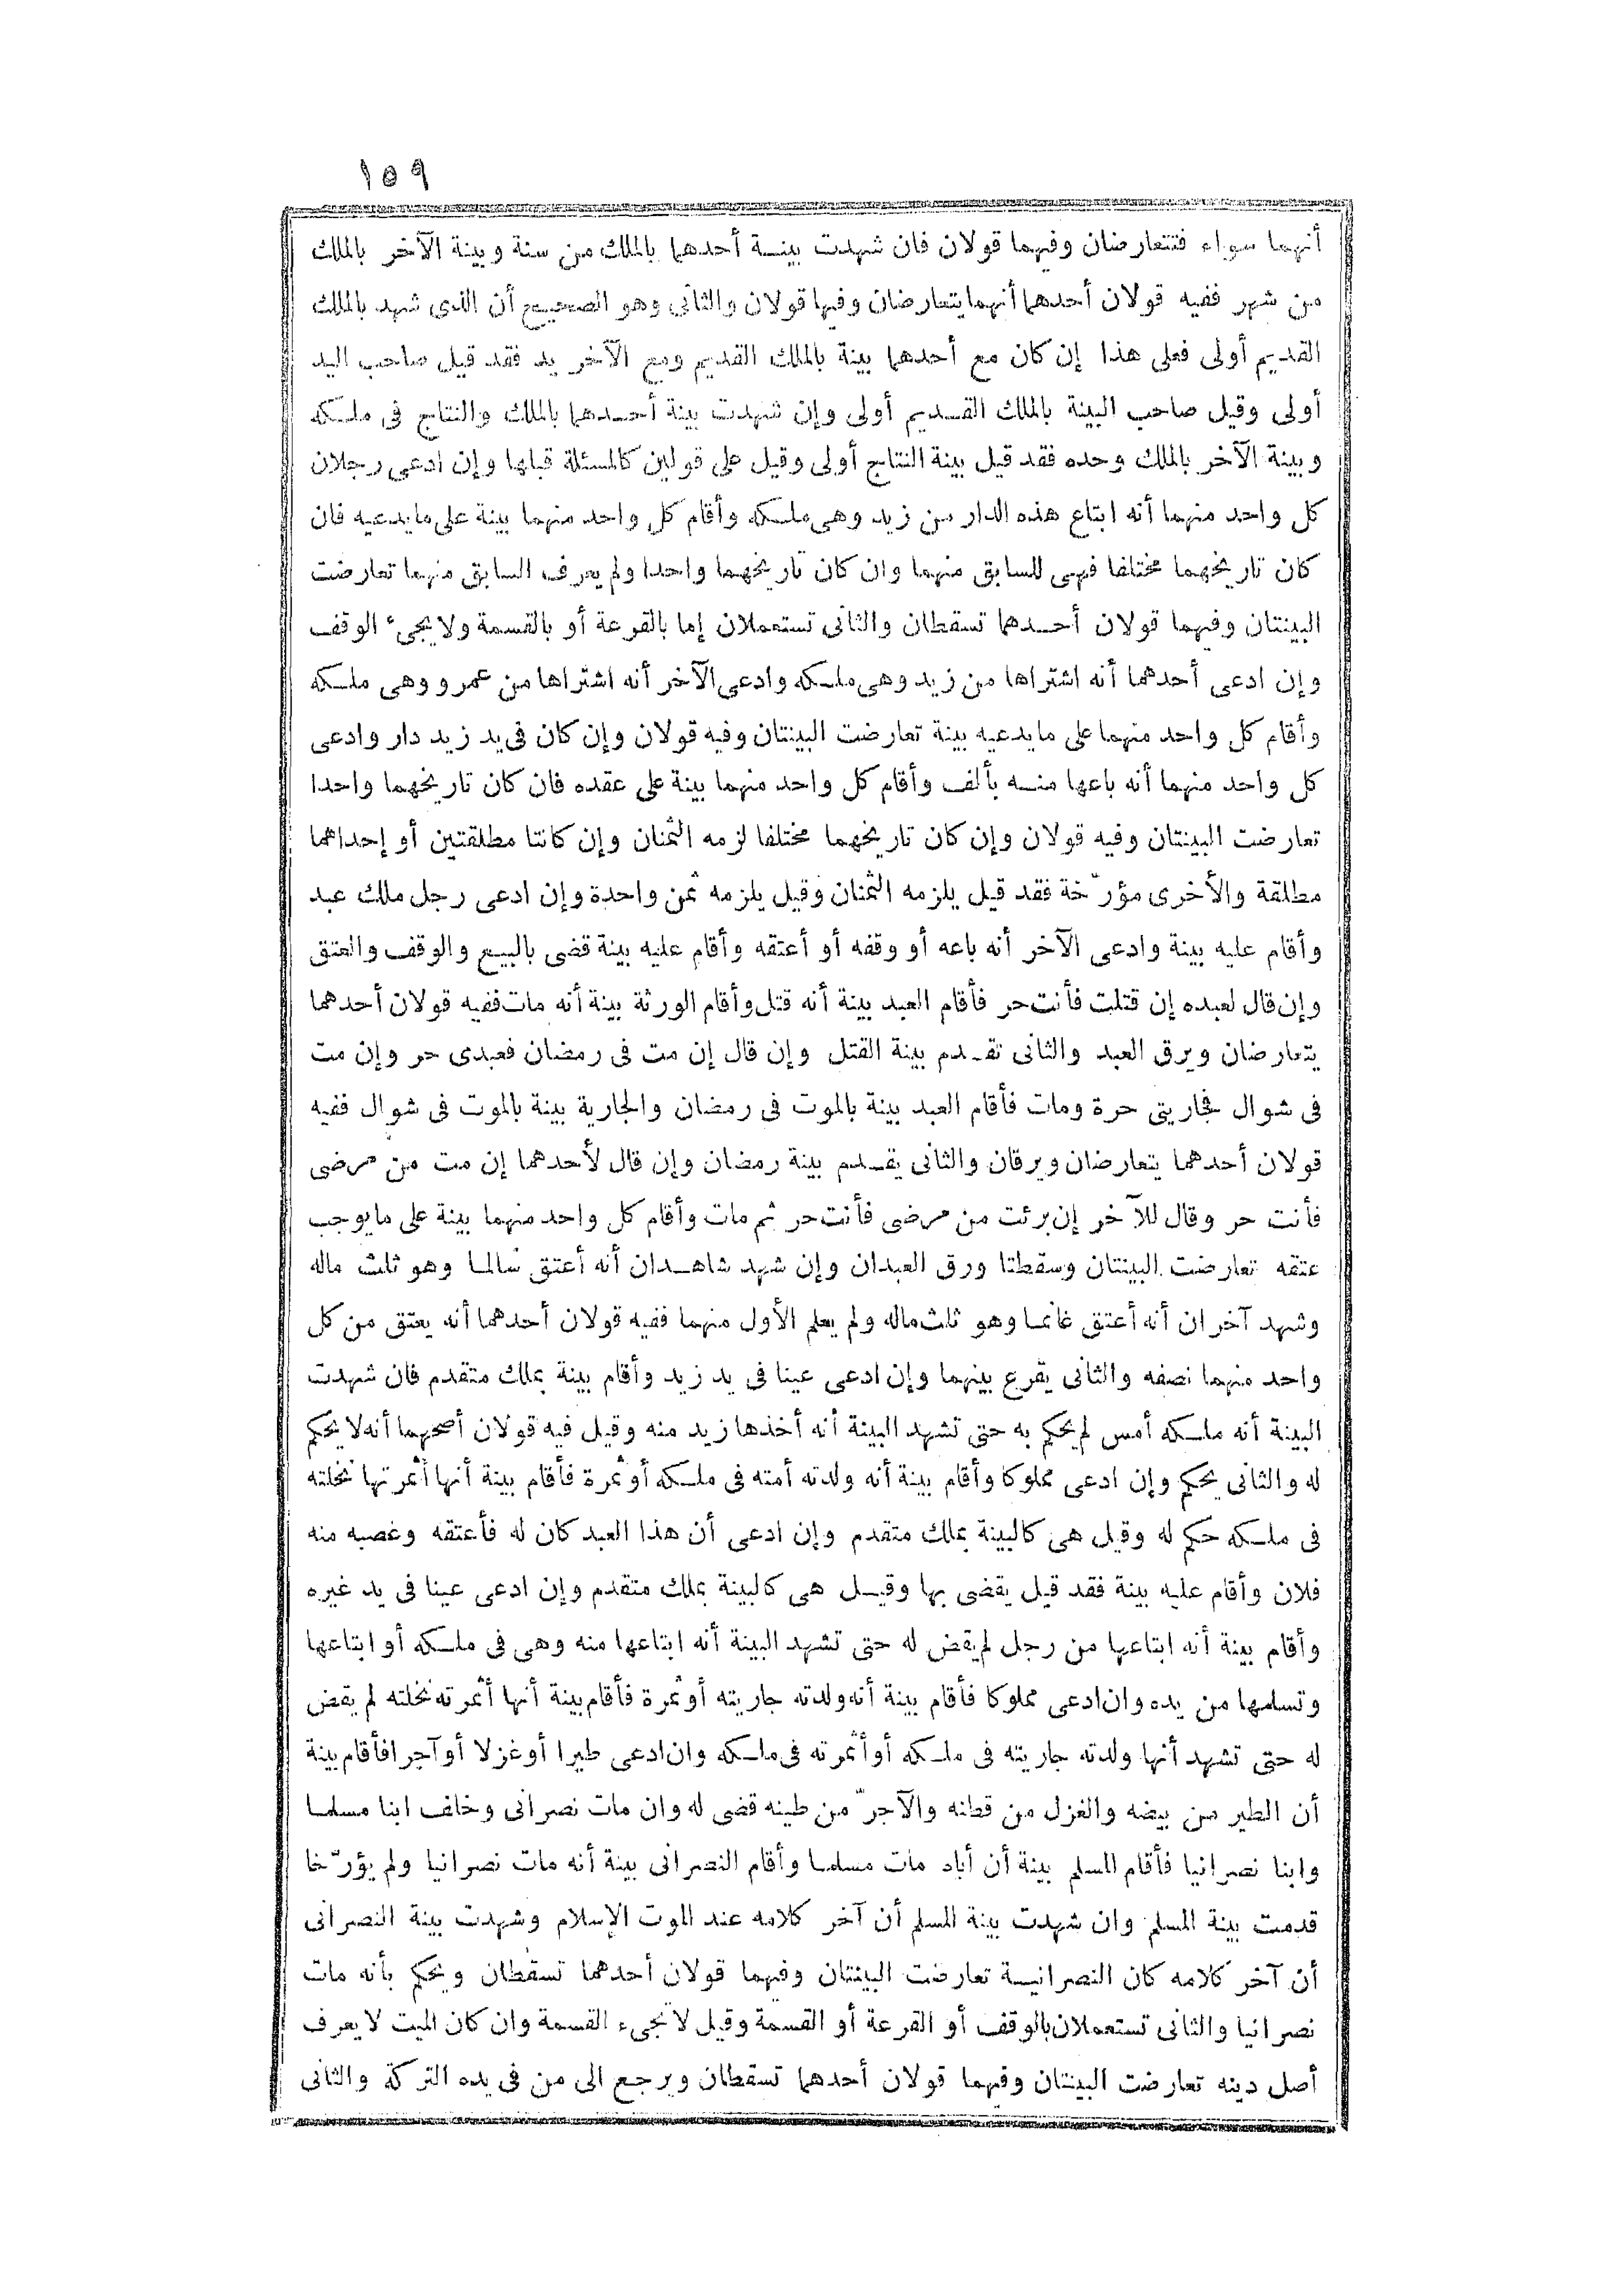 ١٥٩
أنهما سواء فتتعارضان وفيهما قولان فان شهدت بينة أحدهما بالملك من سنة وبينة الآخر بالملك
من شهر ففيه قولان أحدهما أنهما يتعارضان وفيها قولان والثانى وهو الصحيح أن الذى شهد بالملك
القديم أولى فعلى هذا إن كان مع أحدهما بينة بالملك القديم ومع الآخر يد فقد قيل صاحب اليد
أولى وقيل صاحب البينة بالملك القديم أولى وإن شهدت بينة أحدهما بالملك والنتاج فى ملكه
وبينة الآخر بالملك وحده فقد قيل بينة النتاج أولى وقيل على قولين كالمسئلة قبلها وإن ادعى رجلان
كل واحد منهما أنه ابتاع هذه الدار من زيد وهى ملكه وأقام كل واحد منهما بينة على ما يدعيه فان
كان تاريخهما مختلفا فهى للسابق منهما وان كان تاريخهما واحدا ولم يعرف السابق منهما تعارضت
البينتان وفيهما قولان أحدهما تسقطان والثانى تستعملان إما بالقرعة أو بالقسمة ولا يجىء الوقف
وإن ادعى أحدهما أنه اشتراها من زيد وهى ملكه وادعى الآخر أنه اشتراها من عمرو وهى ملكه
وأقام كل واحد منهما على ما يدعيه بينة تعارضت البينتان وفيه قولان وإن كان فى يد زيد دار وادعى
كل واحد منهما أنه باعها منه بألف وأقام كل واحد منهما بينة على عقده فان كان تاريخهما واحدا
تعارضت البينتان وفيه قولان وإن كان تاريخهما مختلفا لزمه الثمنان وإن كانتا مطلقتين أو إحداهما
مطلقة والأخرى مؤرّخة فقد قيل يلزمه الثمنان وقيل يلزمه ثمن واحدة وإن ادعى رجل ملك عبد
وأقام عليه بينة وادعى الآخر أنه باعه أو وقفه أو أعتقه وأقام عليه بينة قضى بالبيع والوقف والعتق
وإن قال لعبده إن قتلت فأنت حر فأقام العبد بينة أنه قتل وأقام الورثة بينة أنه مات ففيه قولان أحدهما
يتعارضان ويرق العبد والثانى تقدم بينة القتل وإن قال إن مت فى رمضان فعبدى حر وإن مت
فى شوال فجاريتى حرة ومات فأقام العبد بينة بالموت فى رمضان والجارية بينة بالموت فى شوال ففيه
قولان أحدهما يتعارضان ويرقان والثانى يقدم بينة رمضان وإن قال لأحدهما إن مت من مرضى
فأنت حر وقال للآخر إن برئت من مرضى فأنت حر ثم مات وأقام كل واحد منهما بينة على ما يوجب
عتقه تعارضت البينتان وسقطتا ورق العبدان وإن شهد شاهدان أنه أعتق سالما وهو ثلث ماله
وشهد آخران أنه أعتق غانما وهو ثلث ماله ولم يعلم الأول منهما ففيه قولان أحدهما أنه يعتق من كل
واحد منهما نصفه والثانى يقرع بينهما وإن ادعى عينا فى يد زيد وأقام بينة بملك متقدم فان شهدت
البينة أنه ملكه أمس لم يحكم به حتى تشهد البينة أنه أخذها زيد منه وقيل فيه قولان أصحهما أنه لا يحكم
له والثانى يحكم وإن ادعى مملوكا وأقام بينة أنه ولدته أمته فى ملكه أو ثمرة فأقام بينة أنها أثمرتها نخلته
فى ملكه حكم له وقيل هى كالبينة بملك متقدم وإن ادعى أن هذا العبد كان له فأعتقه وغصبه منه
فلان وأقام عليه بينة فقد قيل يقضى بها وقيل هى كالبينة بملك متقدم وإن ادعى عينا فى يد غيره
وأقام بينة أنه ابتاعها من رجل لم يقض له حتى تشهد البينة أنه ابتاعها منه وهى فى ملكه أو ابتاعها
وتسلمها من يده وان ادعى مملوكا فأقام بينة أنه ولدته جاريته أو ثمرة فأقام بينة أنها أثمرته نخلته لم يقض
له حتى تشهد أنها ولدته جاريته فى ملكه أو أثمرته فى ملكه وان ادعى طيرا أو غزلا أو آجرا فأقام بينة
أن الطير من بيضه والغزل من قطنه والآجرّ من طينه قضى له وان مات نصرانى وخلف ابنا مسلما
وابنا نصرانيا فأقام المسلم بينة أن أباه مات مسلما وأقام النصرانى بينة أنه مات نصرانيا ولم يؤرّخا
قدمت بينة المسلم وان شهدت بينة المسلم أن آخر كلامه عند الموت الإسلام وشهدت بينة النصرانى
أن آخر كلامه كان النصرانية تعارضت البينتان وفيهما قولان أحدهما تسقطان ويحكم بأنه مات
نصرانيا والثانى تستعملان بالوقف أو القرعة أو القسمة وقيل لا تجىء القسمة وان كان الميت لا يعرف
أصل دينه تعارضت البينتان وفيهما قولان أحدهما تسقطان ويرجع الى من فى يده التركة والثانى